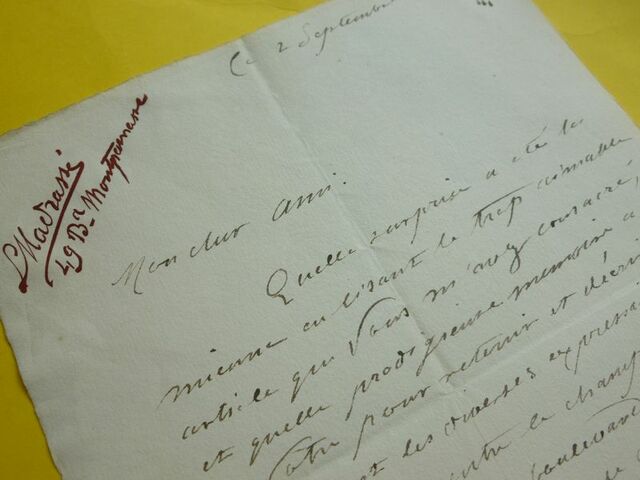 L Madrassi
49 Bd Montparnasse
Ce 2 Septembre
Mon cher ami.
Quelle surprise a été la
mienne en lisant le trop aimable
article que vous m'avez consacré,
et quelle prodigieuse mémoire a
votre pour retenir et décri
t les diverses expressi
tre le champ
boulevard